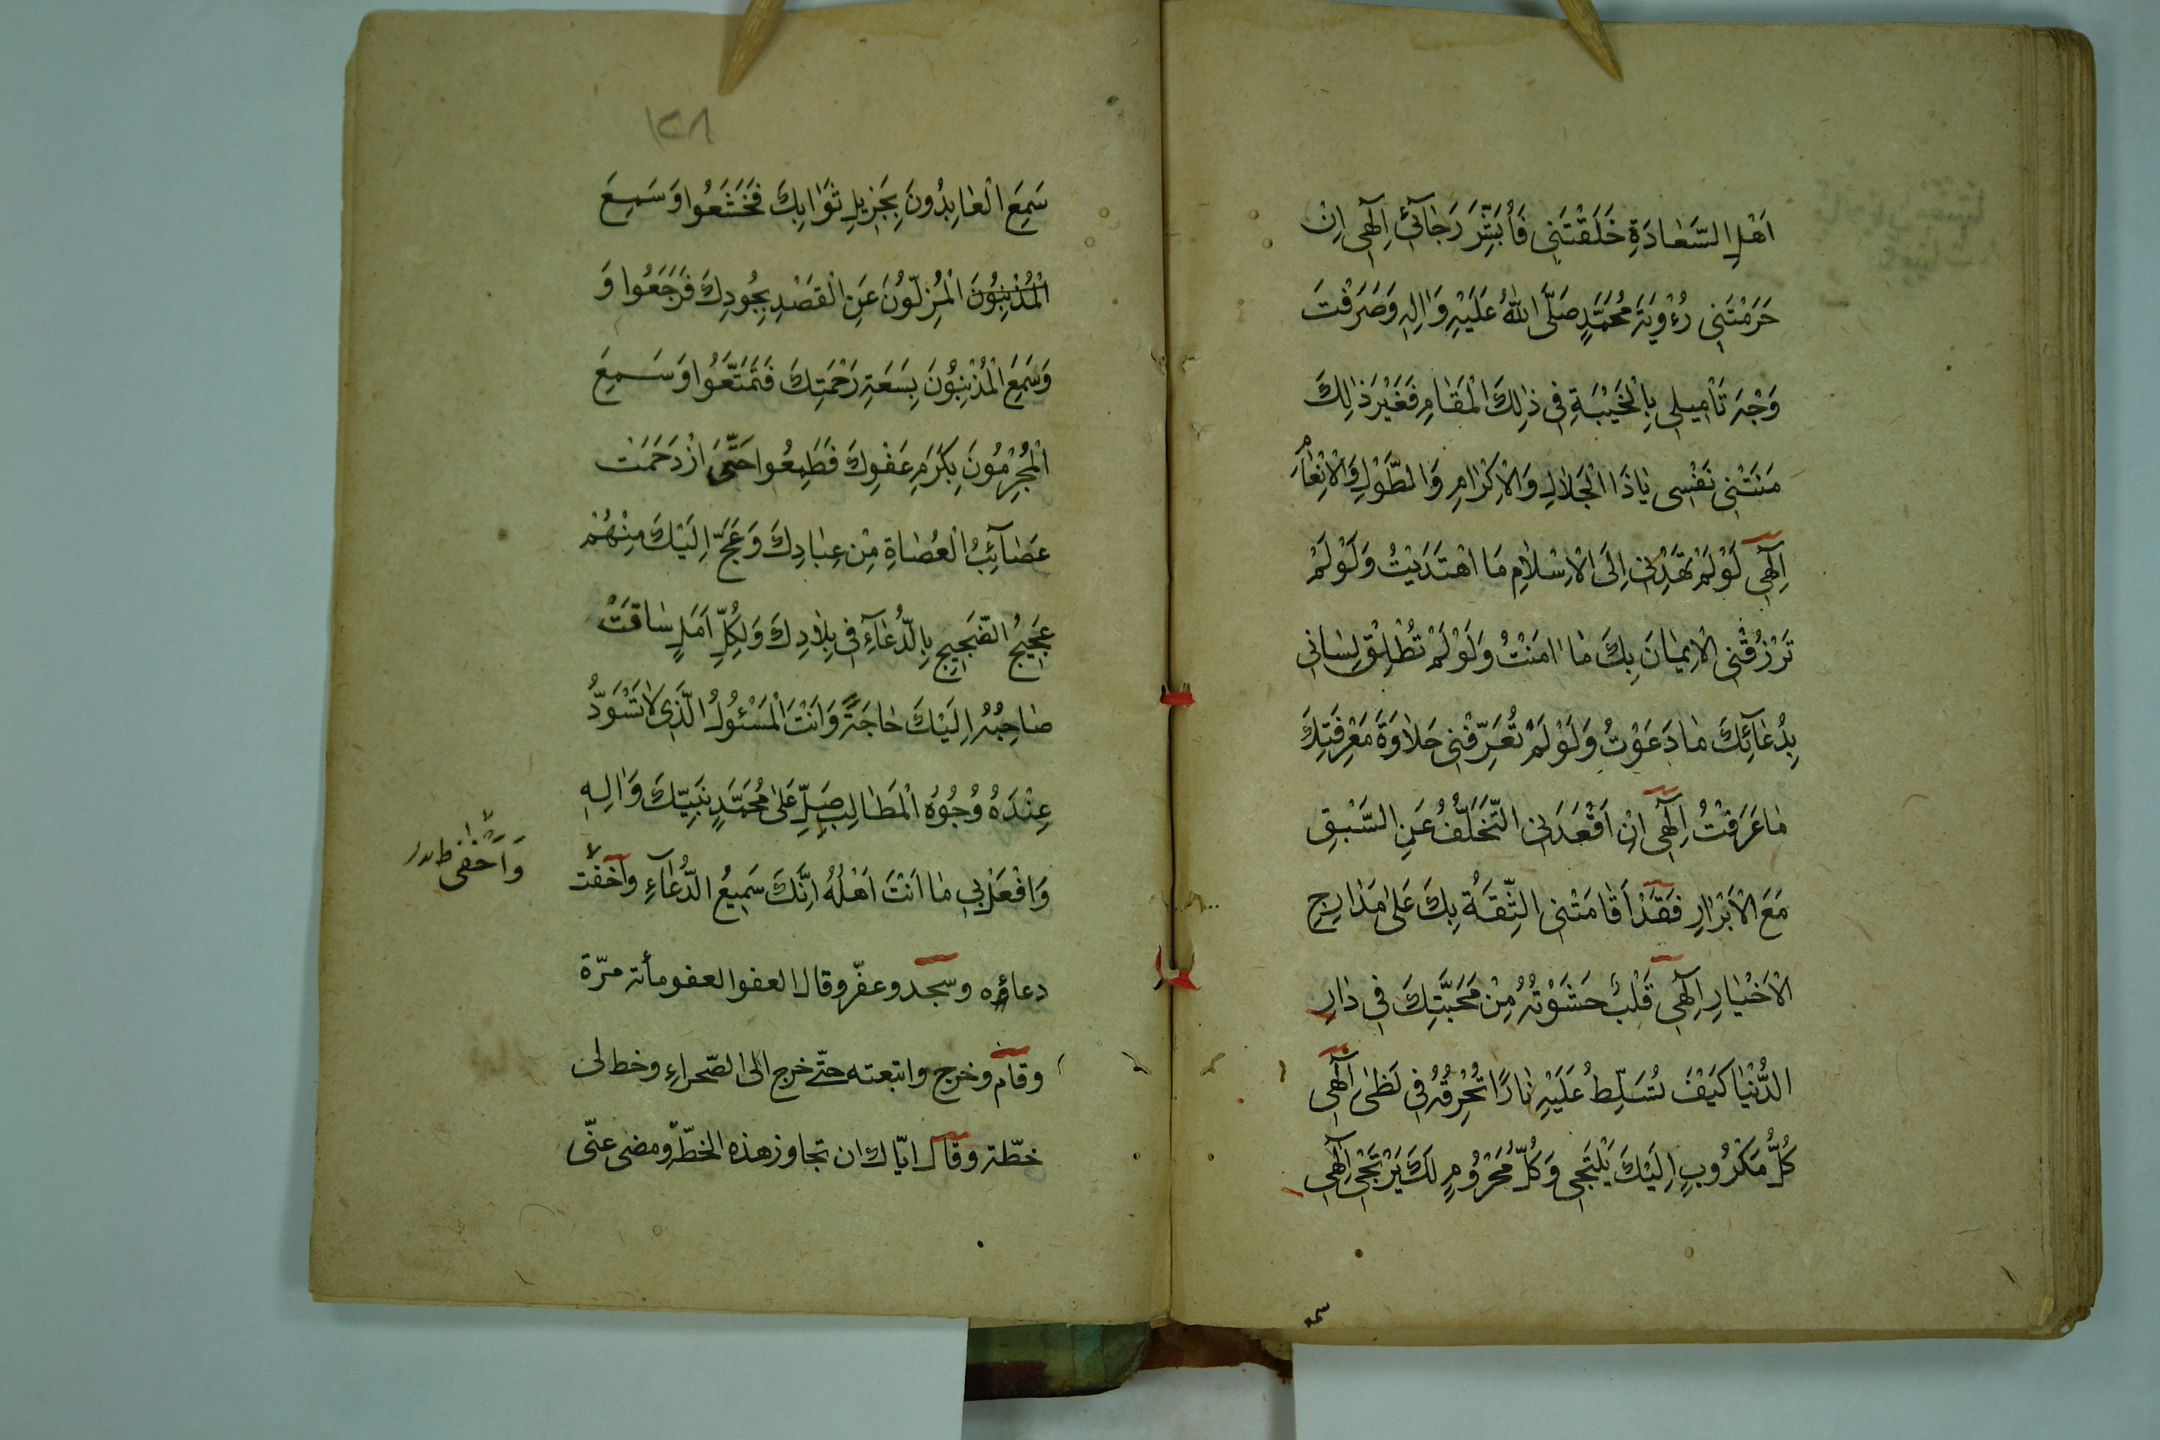 اَهْلِ السَّعٰادَةِ خَلَقْتَنِي فَأُبَشِّرَ رَجٰآئِي اِلٰهِي اِنْ
حَرَمْتَنِي رُءْوِيَةَ مُحَمَّدٍ صَلَّى اللهُ عَلَيْهِ وَاٰلِهِ وَصَرَفْتَ
وَجْهَ تَأْمِيلِي بِالْخَيْبَةِ فِي ذٰلِكَ الْمَقٰامِ فَغَيْرَ ذٰلِكَ
مَنَّتْنِي نَفْسِي يٰاذَا الْجَلاٰلِ وَالْاِكْرٰامِ وَالطَّوْلِ وَالْاِنْعٰامِ
اِلٰهِي لَوْ لَمْ تَهْدِنِي اِلَى الْاِسْلاٰمِ مَا اهْتَدَيْتُ وَلَوْ لَمْ
تَرْزُقْنِي الْاِيمٰانَ بِكَ مٰا اٰمَنْتُ وَلَوْ لَمْ تُطْلِقْ لِسٰانِي
بِدُعٰآئِكَ مٰا دَعَوْتُ وَلَوْ لَمْ تُعَرِّفْنِي حَلاٰوَةَ مَعْرِفَتِكَ
مٰا عَرَفْتُ اِلٰهِي اِنْ اَقْعَدَنِي التَّخَلُّفُ عَنِ السَّبْقِ
مَعَ الْاَبْرٰارِ فَقَدْ اَقٰامَتْنِي الثِّقَةُ بِكَ عَلٰى مَدٰارِجِ
الْاَخْيٰارِ اِلٰهِي قَلْبٌ حَشَوْتُهُ مِنْ مَحَبَّتِكَ فِي دٰارِ
الدُّنْيٰا كَيْفَ تُسَلِّطُ عَلَيْهِ نٰارًا تُحْرِقُهُ فِي لَظٰى اِلٰهِي
كُلُّ مَكْرُوبٍ اِلَيْكَ يَلْتَجِي وَكُلُّ مَحْرُومٍ لَكَ يَرْتَجِي اِلٰهِي
سمع
١٣٨
سَمِعَ الْعٰابِدُونَ بِجَزِيلِ ثَوٰابِكَ فَخَشَعُوا وَسَمِعَ
الْمُذْنِبُونَ الْمُزِلُّونَ عَنِ الْقَصْدِ بِجُودِكَ فَرَجَعُوا وَ
وَسَمِعَ الْمُذْنِبُونَ بِسَعَةِ رَحْمَتِكَ فَتَمَتَّعُوا وَسَمِعَ
الْمُجْرِمُونَ بِكَرَمِ عَفْوِكَ فَطَمِعُوا حَتَّى ازْدَحَمَتْ
عَصٰآئِبُ الْعُصٰاةِ مِنْ عِبٰادِكَ وَعَجَّ اِلَيْكَ مِنْهُمْ
عَجِيجُ الضَّجِيجِ بِالدُّعٰآءِ فِي بِلاٰدِكَ وَلِكُلٍّ اَمَلٍ سٰاقَتْ
صٰاحِبُهُ اِلَيْكَ حٰاجَةً وَاَنْتَ الْمَسْئُولُ الَّذِي لاٰ تَسْوَدُّ
عِنْدَهُ وُجُوهُ الْمَطٰالِبِ صَلِّ عَلٰى مُحَمَّدٍ نَبِيِّكَ وَاٰلِهِ
وَافْعَلْ بِي مٰا اَنْتَ اَهْلُهُ اِنَّكَ سَمِيعُ الدُّعٰآءِ وَاخفت
وَاَخْفٰى
دعاؤه وسجد وعفّر وقال العفو العفو مأئة مرّة
وقام وخرج واتبعته حتّى خرج الى الصّحراء وخط لى
خطّة وقال ايّاك ان تجاوز هذه الخطّة ومضى عنّى